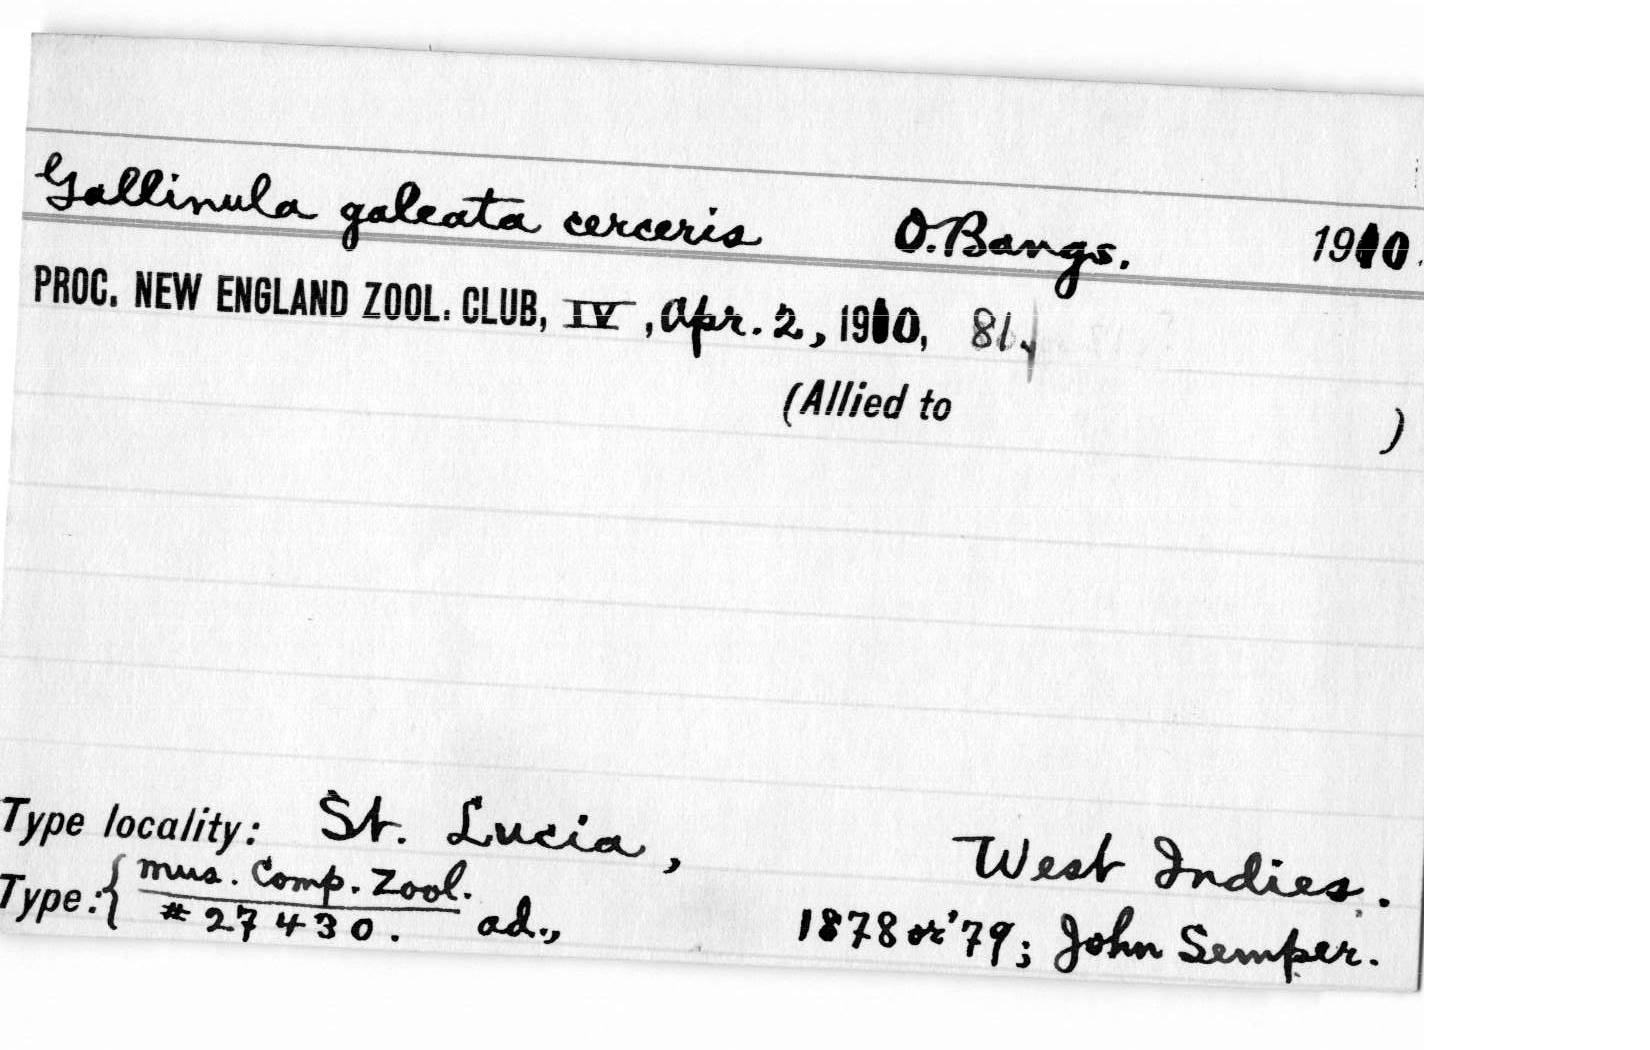 Gallinula galeata cerceris O. Bangs. 1910.
PROC. NEW ENGLAND ZOOL. CLUB, IV, Apr. 2, 1910, 81.
(Allied to )
Type locality: St. Lucia, West Indies.
Type: { Mus. Comp. Zool.
# 27430. ad., 1878 or '79; John Semper.